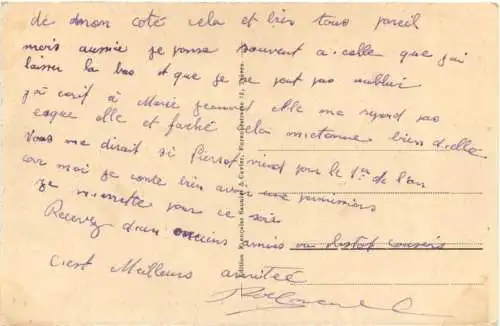 de mon coté cela et bien tous pareil
mois aussie je panse souvent a celle que j'ai
laisser la bas et que je ne peut pas oublier
j'ai ecrit à Marie Jeanne elle me repond pas
esque elle et faché cela m'etonne bien d'elle
Vous me dirait si Pierrot vient pour le 1er de l'an
car moi je conte bien avoir une permission
je m'arrette pour ce soir
Recevez d'un anciens amis ou plustot cousins
c'est Meilleurs amitiée